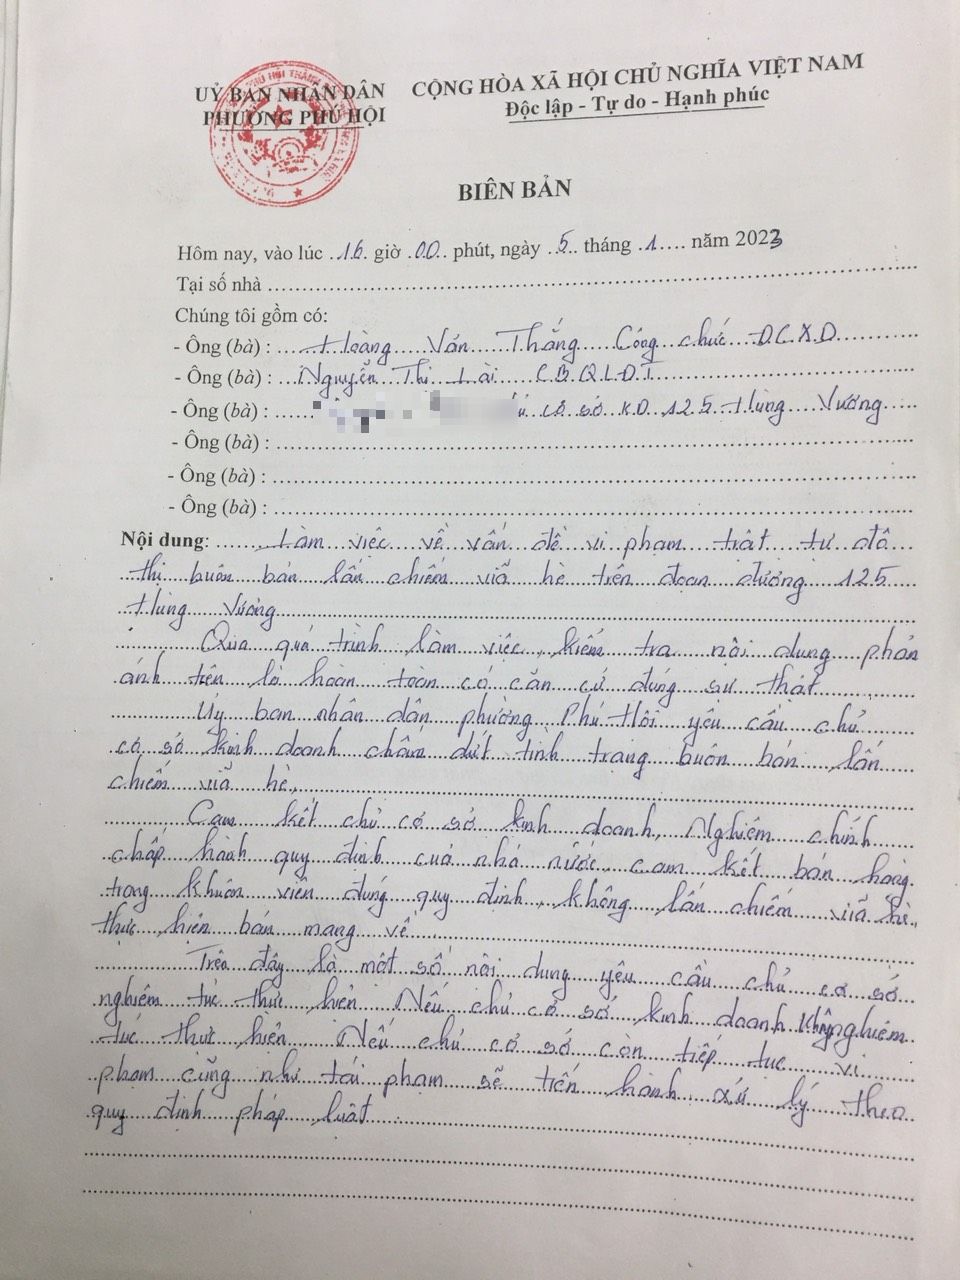 ỦY BAN NHÂN DÂN
PHƯỜNG PHÚ HỘI
CỘNG HÒA XÃ HỘI CHỦ NGHĨA VIỆT NAM
Độc lập - Tự do - Hạnh phúc
BIÊN BẢN
Hôm nay, vào lúc 16 giờ 00 phút, ngày 5 tháng 1 năm 2023
Tại số nhà
Chúng tôi gồm có:
- Ông (bà) : Hoàng Văn Thắng Công chức Đ.C.X.D
- Ông (bà) : Nguyễn Thị Lài C.B.Q.L.Đ.T
- Ông (bà) : cơ sở K.D 125 Hùng Vương
- Ông (bà) :
- Ông (bà) :
- Ông (bà) :
Nội dung: Làm việc về vấn đề vi phạm trật tự đô
thị buôn bán lấn chiếm vỉa hè trên đoạn đường 125
Hùng Vương
Qua quá trình làm việc, kiểm tra nội dung phản
ánh trên là hoàn toàn có căn cứ đúng sự thật
Ủy ban nhân dân phường Phú Hội yêu cầu chủ
cơ sở kinh doanh chấm dứt tình trạng buôn bán lấn
chiếm vỉa hè,
Cam kết chủ cơ sở kinh doanh, Nghiêm chỉnh
chấp hành quy định của nhà nước, cam kết bán hàng
trong khuôn viên đúng quy định, không lấn chiếm vỉa hè,
thực hiện bán mang về
Trên đây là một số nội dung yêu cầu chủ cơ sở
nghiêm túc thực hiện Nếu chủ cơ sở kinh doanh không nghiêm
túc thực hiện Nếu chủ cơ sở còn tiếp tục vi
phạm cũng như tái phạm sẽ tiến hành xử lý theo
quy định pháp luật